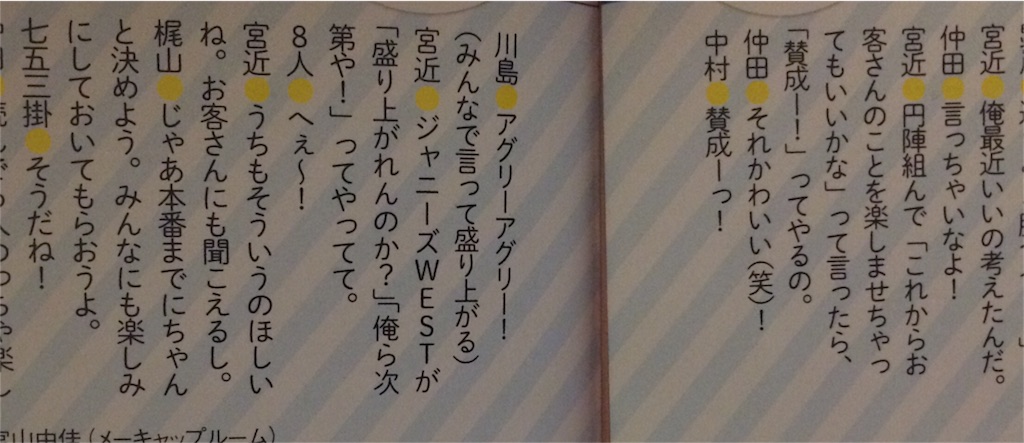 宮近●俺最近いいの考えたんだ。
仲田●言っちゃいなよ!
宮近●円陣組んで「これからお
客さんのことを楽しませちゃっ
てもいいかな」って言ったら、
「賛成ー!」ってやるの。
仲田●それかわいい(笑)!
中村●賛成ーっ!
川島●アグリーアグリー!
(みんなで言って盛り上がる)
宮近●ジャニーズWESTが
「盛り上がれんのか?」「俺ら次
第や!」ってやってて。
8人●へぇ〜!
宮近●うちもそういうのほしい
ね。お客さんにも聞こえるし。
梶山●じゃあ本番までにちゃん
と決めよう。みんなにも楽しみ
にしておいてもらおうよ。
七五三掛●そうだね!
宮山由佳(メーキャップルーム)